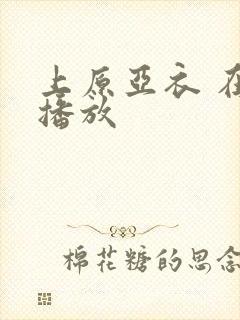 上原亞衣 在
播放
棉花糖的思念